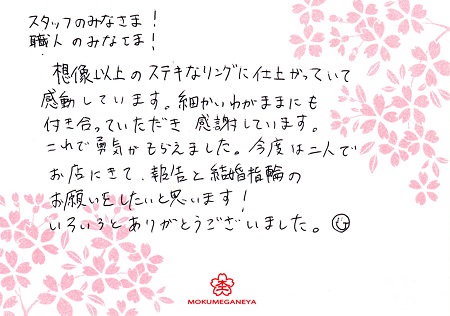 スタッフのみなさま!
職人のみなさま!
想像以上のステキなリングに仕上がっていて
感動しています。細かいわがままにも
付き合っていただき 感謝しています。
これで勇気がもらえました。今度は二人で
お店にきて、報告と結婚指輪の
お願いをしたいと思います!
いろいろとありがとうございました。
MOKUMEGANEYA